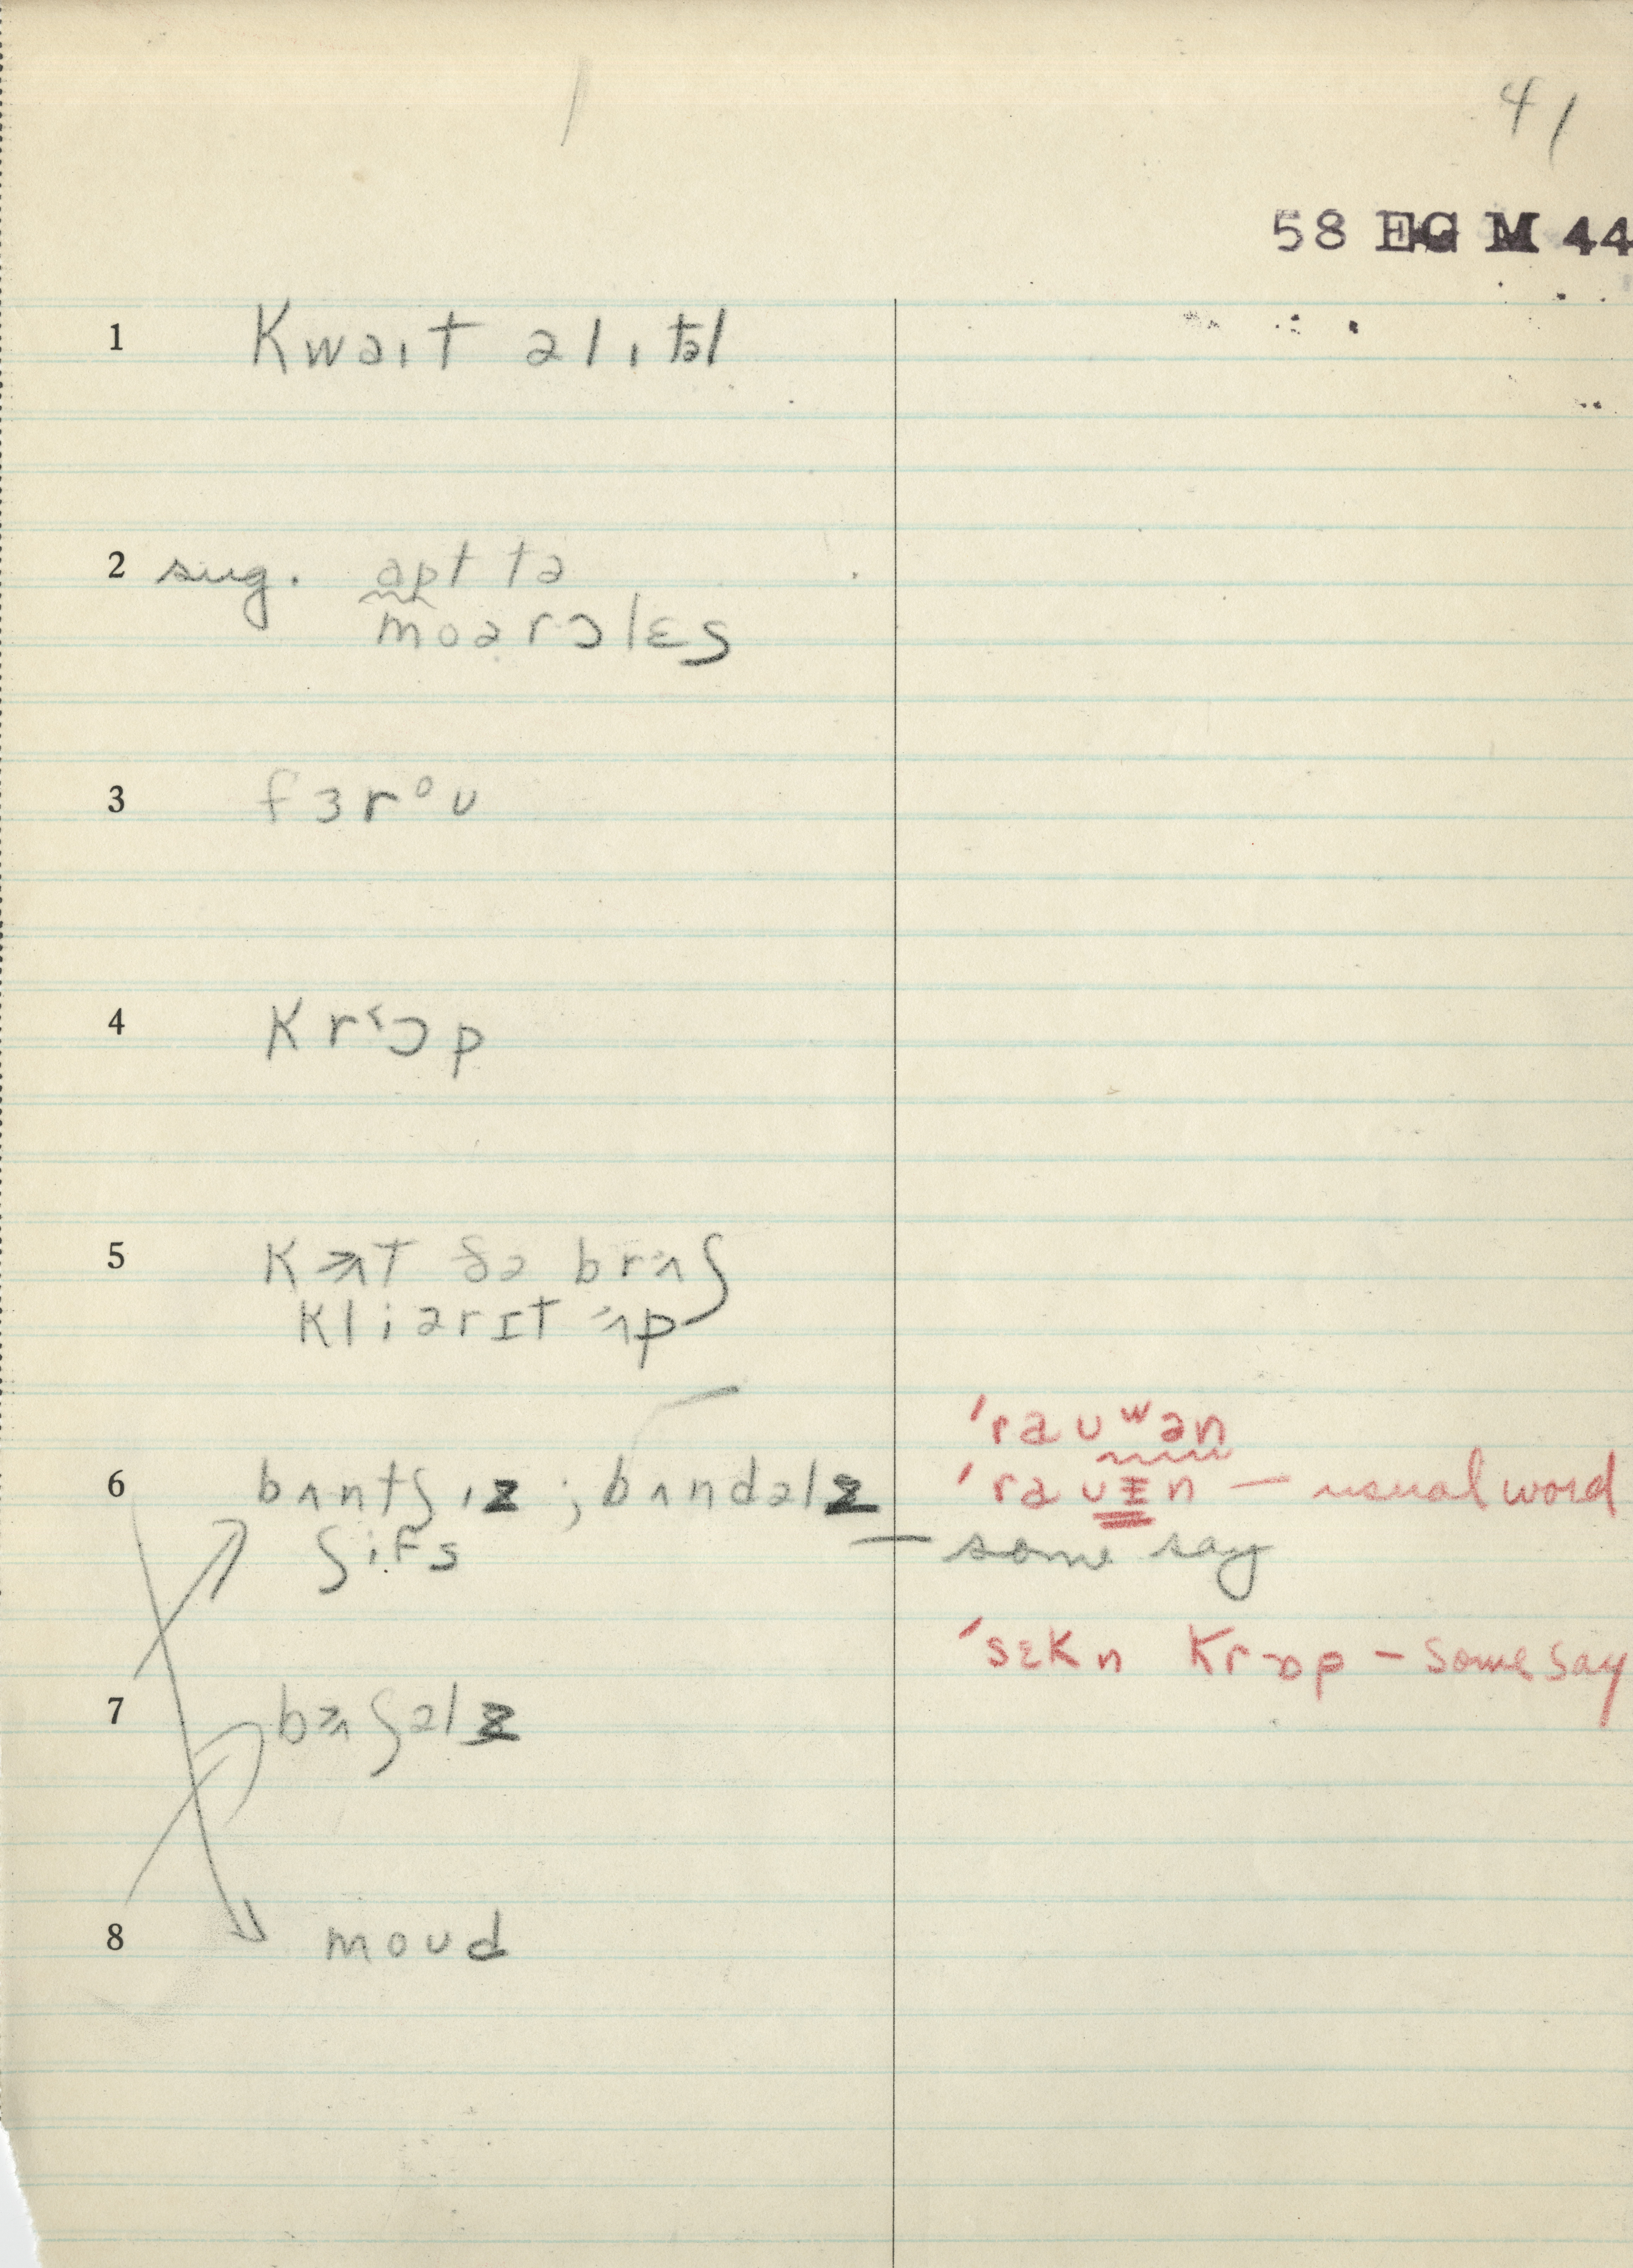 41
58 EG M 44
1 kwaɪt ə lɪtəl
2 sug. apt tə
moərɔlɛs
3 fɜrᵒʊ
4 krɔ˂p
5 kʌ˃t ðə brʌ˃ʃ
kliərɪt ʌ˃p
6 bʌntʃɪz ; bʌndəlz
ʃifs
'raʊʷən
'raʊɪn — usual word
— some say
'sɛkn krɒp – some say
7 bʌ˃ʃəlz
8 moʊd